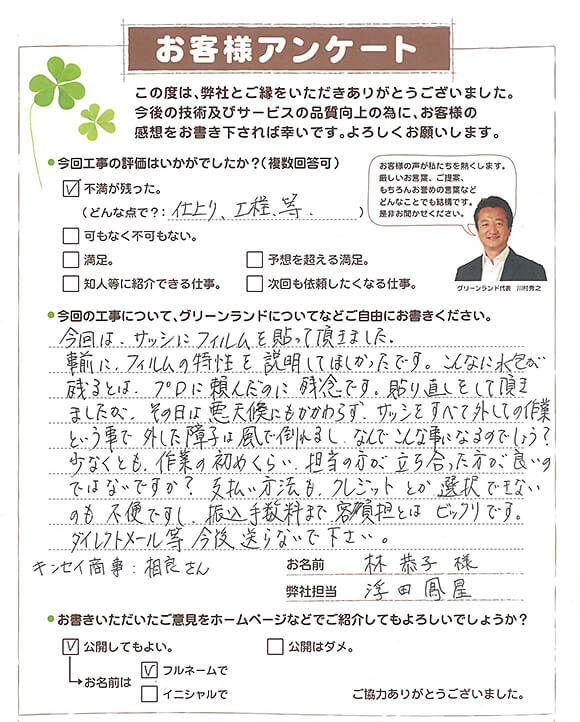 お客様アンケート
この度は、弊社とご縁をいただきありがとうございました。
今後の技術及びサービスの品質向上の為に、お客様の
感想をお書き下されば幸いです。よろしくお願いします。
●今回工事の評価はいかがでしたか?(複数回答可)
☑ 不満が残った。
(どんな点で?: 仕上り、工程、等、 )
□ 可もなく不可もない。
□ 満足。 □ 予想を超える満足。
□ 知人等に紹介できる仕事。 □ 次回も依頼したくなる仕事。
お客様の声が私たちを熱くします。
厳しいお言葉、ご提案、
もちろんお誉めの言葉など
どんなことでも結構です。
是非お聞かせください。
グリーンランド代表 川村秀之
●今回の工事について、グリーンランドについてなどご自由にお書きください。
今回は、サッシにフィルムを貼って頂きました。
事前に、フィルムの特性を説明してほしかったです。こんなに水包が
残るとは、プロに頼んだのに残念です。貼り直しをして頂き
ましたが、その日は悪天候にもかかわらず、サッシをすべて外しての作業
という事で外した障子は風で倒れるし、なんでこんな事になるのでしょう?
少なくとも、作業の初めくらい、担当の方が立ち合った方が良いの
ではないですか? 支払い方法も、クレジットとか選択できない
のも不便ですし、振込手数料まで客負担とはビックリです。
ダイレクトメール等今後送らないで下さい。
キンセイ商事:相良さん
お名前 林 恭子 様
弊社担当 浮田 鳳星
●お書きいただいたご意見をホームページなどでご紹介してもよろしいでしょうか?
☑ 公開してもよい。 □ 公開はダメ。
→お名前は ☑ フルネームで
□ イニシャルで
ご協力ありがとうございました。